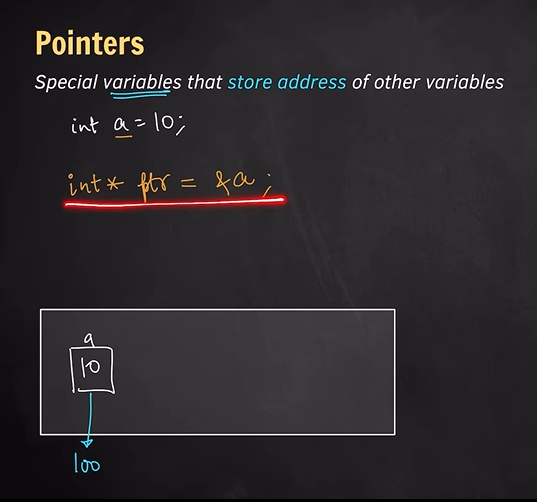 Pointers
Special variables that store address of other variables
int a = 10;
int* ptr = &a;
a
10
100